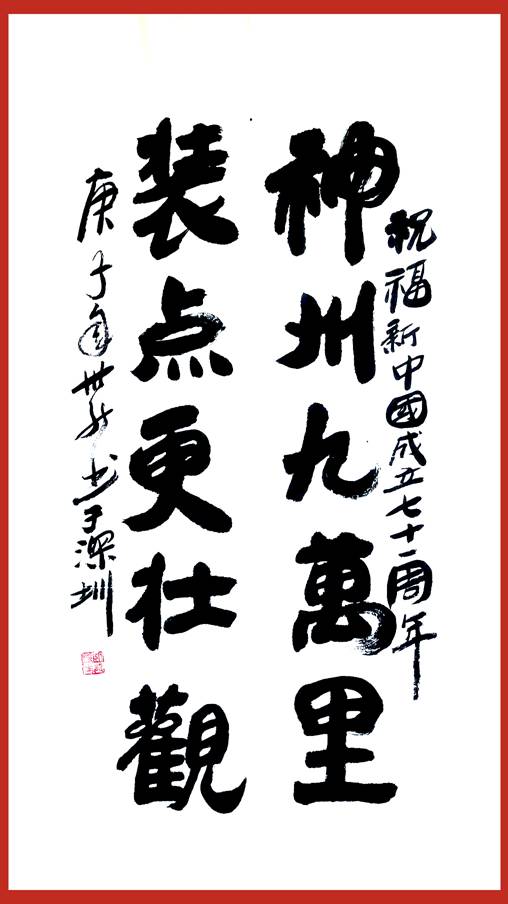 祝福新中國成立七十一周年
神州九萬里
装点更壮觀
庚子书于深圳